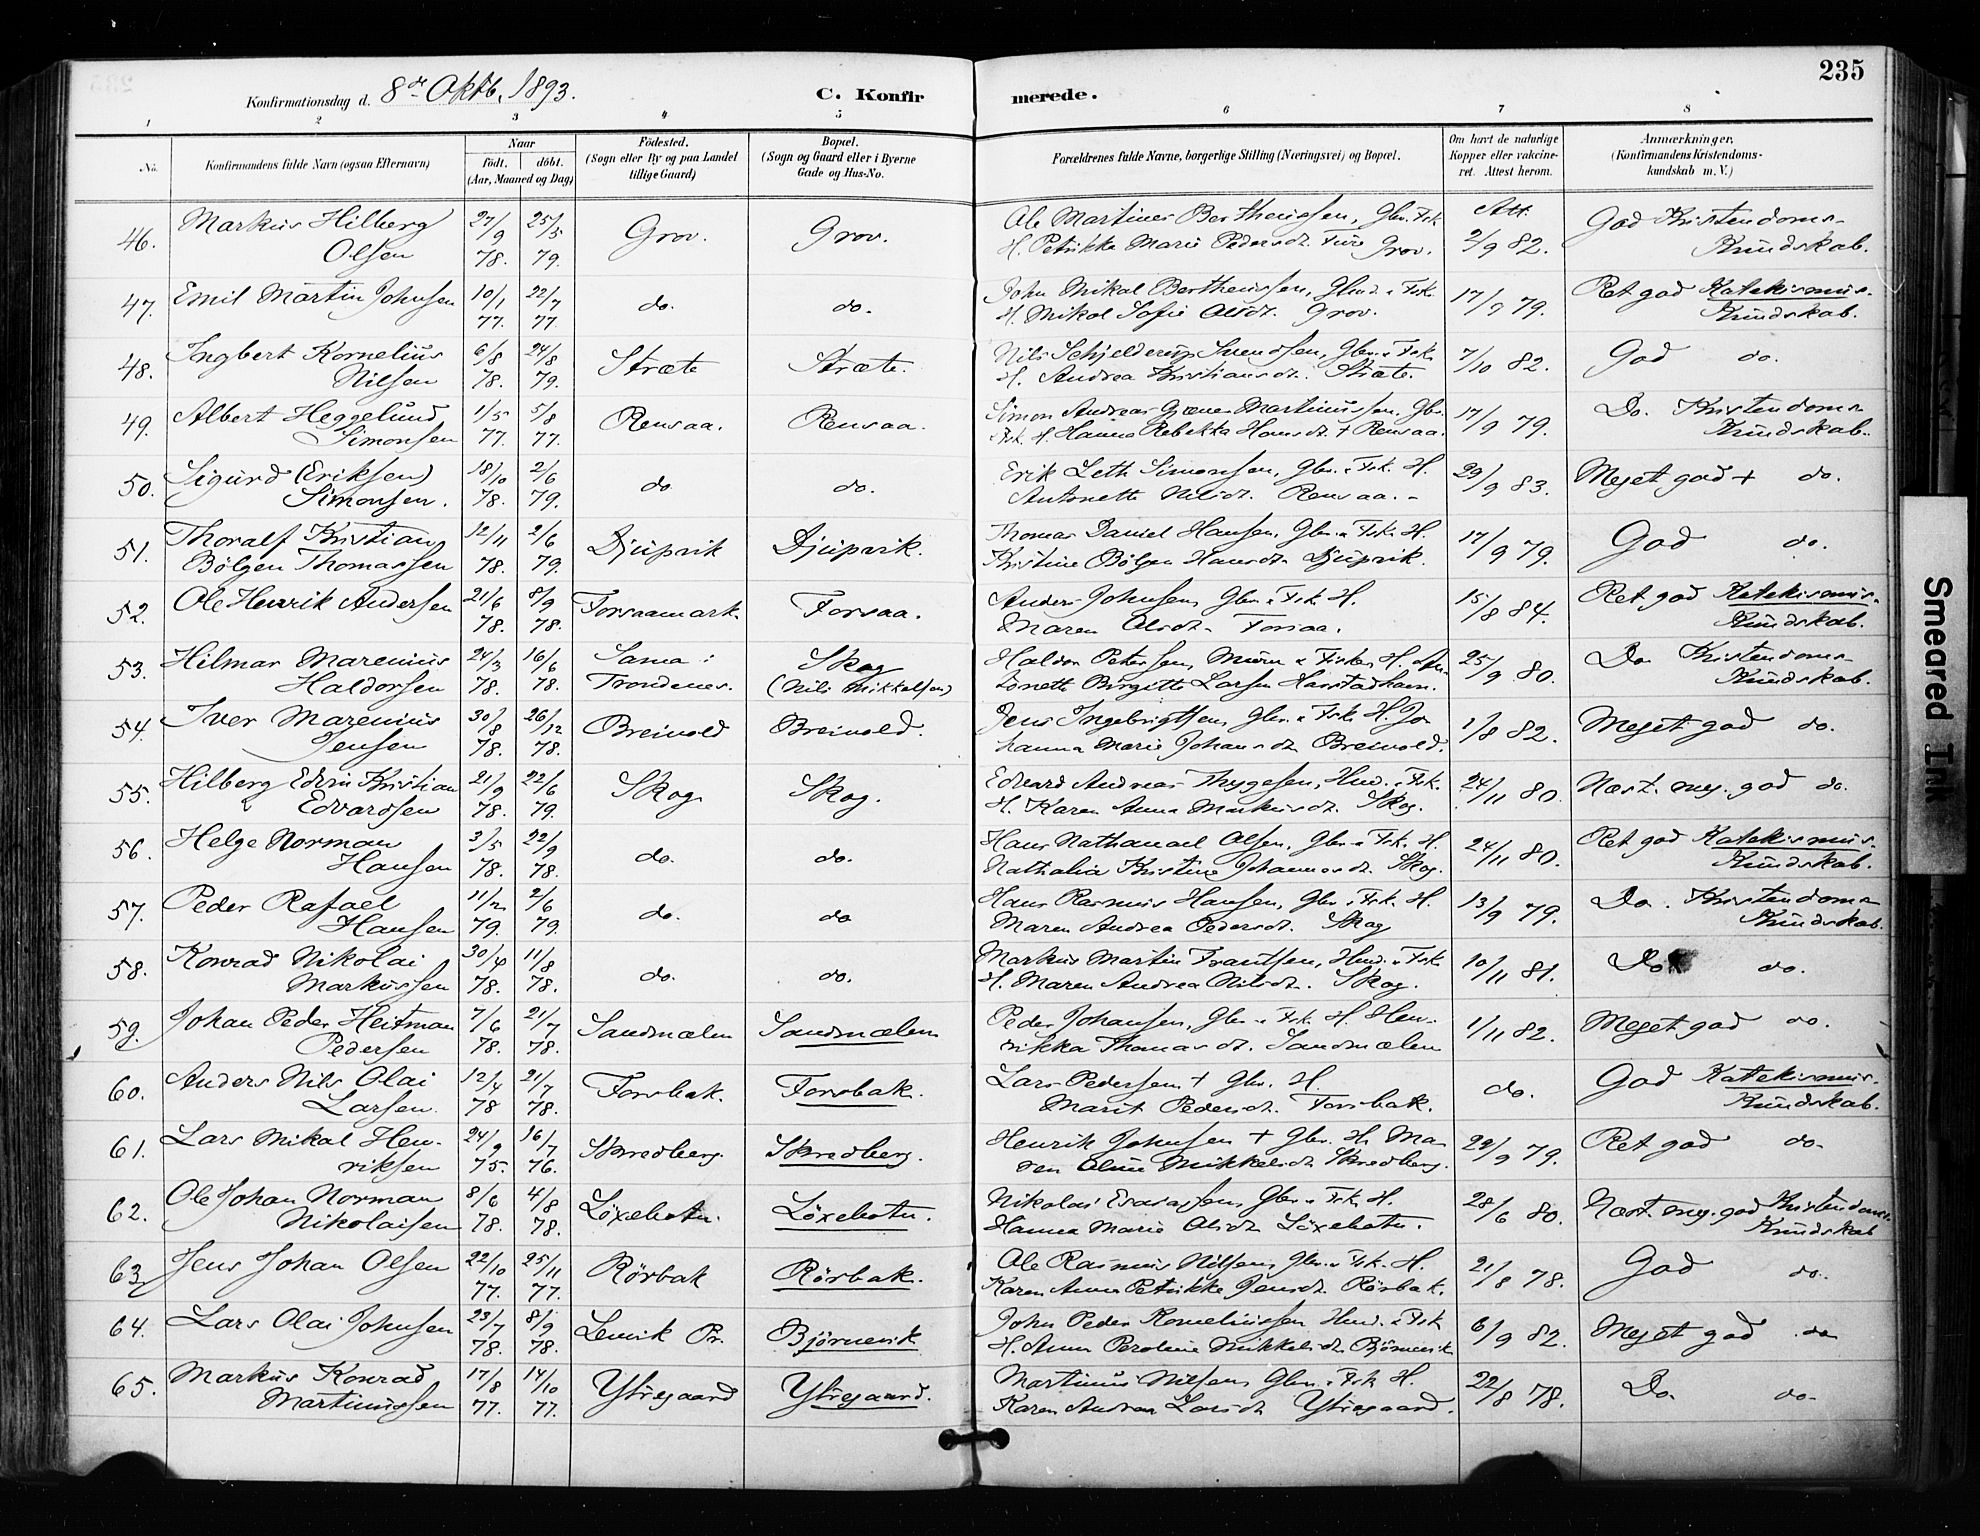 235
Konfirmationsdag d. 8de Oktb. 1893. C. Konfirmerede.
1 2 3 4 5 6 7 8
No. Konfirmandens fulde Navn (ogsaa Efternavn) Naar født. døbt. (Aar, Maaned og Dag) Fødested. (Sogn eller By og paa Landet tillige Gaard) Bopæl. (Sogn og Gaard eller i Byerne Gade og Hus-No. Forældrenes fulde Navne, borgerlige Stilling (Næringsvei) og Bopæl. Om havt de naturlige Kopper eller vakcineret. Attest herom. Anmærkninger, (Konfirmandens Kristendomskundskab m. V.)
46. Markus Hilberg Olsen 27/9 78. 25/5 79. Grov. Grov. Ole Martines Bertheussen, Gbr. Fsk. H. Petrikke Marie Pedersdt. Ture Grov. Att. 2/9 82. God Kristendoms-Kundskab.
47. Emil Martin Johnsen 10/1 77. 22/7 77. do. do. John Mikal Bertheussen, Hmd. & Fsk. H. Nikol. Sofie Olsdt. Grov. 17/9 79. Ret god Katekismus-Kundskab.
48. Ingbert Kornelius Nilsen 6/8 78. 24/8 79. Stræte Stræte. Nils Schjelderup Svendsen, Gbr. & Fsk. H. Andrea Kristiansdt. Stræte. 7/10 82. God do.
49. Albert Heggelund Simonsen 1/5 77. 5/8 77. Rensaa. Rensaa. Simon Andreas Martinussen. Gbr. Fsk. H. Hanna Rebekka Hansdt. + Rensaa. 17/9 79. Do. Kristendoms-Kundskab.
50. Sigurd (Eriksen) Simonsen. 18/10 78. 2/6 79. do do. Erik Leth Simonsen, Gbr. & Fsk. H. Antonette Nilsdt. Rensaa. 29/9 83. Meget god + do.
51. Thoralf Kristian Bölgen Thomassen 12/11 78. 2/6 79. Djupvik Djupvik. Thomas Daniel Hansen, Gbr. & Fsk. H. Kristine Bölgen Hansdt. Djupvik. 17/9 79. God do.
52. Ole Henrik Andersen 21/6 78. 8/9 78. Forsaamark. Forsaa. Anders Johnsen, Gbr. & Fsk. H. Maren Olsdt. Forsaa. 15/8 84. Ret god Katekismus-Kundskab.
53. Hilmar Marenius Haldorsen 24/3 78. 16/6 78. Sama i Trondenes. Skog (Nils Mikkelsen) Haldor Petersen, Murer & Fisker, H. Antonette Birgitte Larsen Harstadhavn. 25/9 80. Do Kristendoms-Kundskab.
54. Iver Marenius Jensen 30/8 78. 26/12 78. Breivold Breivold. Jens Ingebrigtsen, Gbr. & Fsk. H. Johanna Marie Johansdt. Breivold. 1/8 82. Meget god do.
55. Hilberg Edvin Kristian Edvardsen 21/9 78. 22/6 79. Skog Skog. Edvard Andreas Thygesen, Hmd. & Fsk. H. Karen Anna Markusdt. Skog. 24/11 80. Næst. meg. god do.
56. Helge Norman Hansen 3/5 78. 22/9 78. do. do. Hans Nathanael Olsen, Gbr. & Fsk. H. Nathalia Kristine Johannesdt. Skog. 24/11 80. Ret god Katekismus-Kundskab.
57. Peder Rafael Hansen 11/2 79. 2/6 79. do. do Hans Rasmus Hansen, Gbr. & Fsk. H. Maren Andrea Pedersdt. Skog 13/9 79. Do. Kristendoms-Kundskab.
58. Konrad Nikolai Markussen 30/4 78. 11/8 78. do. do. Markus Martin Frantsen, Hmd. & Fsk. H. Maren Andrea Nilsdt. Skog. 10/11 81. Do do.
59. Johan Peder Heitman Pedersen 7/6 78. 21/7 78. Sandmælen Sandmælen Peder Johansen, Gbr. & Fsk. H. Henrikka Thomasdt. Sandmælen 1/11 82. Meget god do.
60. Anders Nils Olai Larsen. 12/4 78 21/7 78. Forsbak. Forsbak. Lars Pedersen + Gbr. H. Marit Pedersdt. Forsbak. do. God Katekismus-Kundskab.
61. Lars Mikal Henriksen 24/9 75. 16/7 76. Skredberg. Skredberg. Henrik Johnsen + Gbr. H. Maren Oline Mikkelsdt. Skredberg. 29/9 79. Ret god do
62. Ole Johan Norman Nikolaisen 8/6 78. 4/8 78. Löxebotn. Löxebotn. Nikolai Esaiassen, Gbr. & Fsk. H. Hanna Marie Olsdt Löxebotn. 28/6 80. Næst. meg. god Kristendoms-Kundskab
63. Jens Johan Olsen 22/10 77. 25/11 77. Rörbak Rörbak. Ole Rasmus Nilsen, Gbr. & Fsk. H. Karen Anna Petrikke Jensdt. Rörbak. 21/8 78. God do.
64. Lars Olai Johnsen 23/7 78. 8/9 78. Lenvik Pr. Björnevik John Peder Korneliussen Hmd. & Fsk H. Anna Peroline Mikkelsdt. Björnevik 6/9 82. Meget god do
65. Markus Konrad Martinussen 17/8 77. 14/10 77. Ytregaard Ytregaard. Martinus Nilsen, Gbr. & Fsk. H. Karen Andrea Larsdt Ytregaard. 22/8 78. Do do.
Smeared Ink